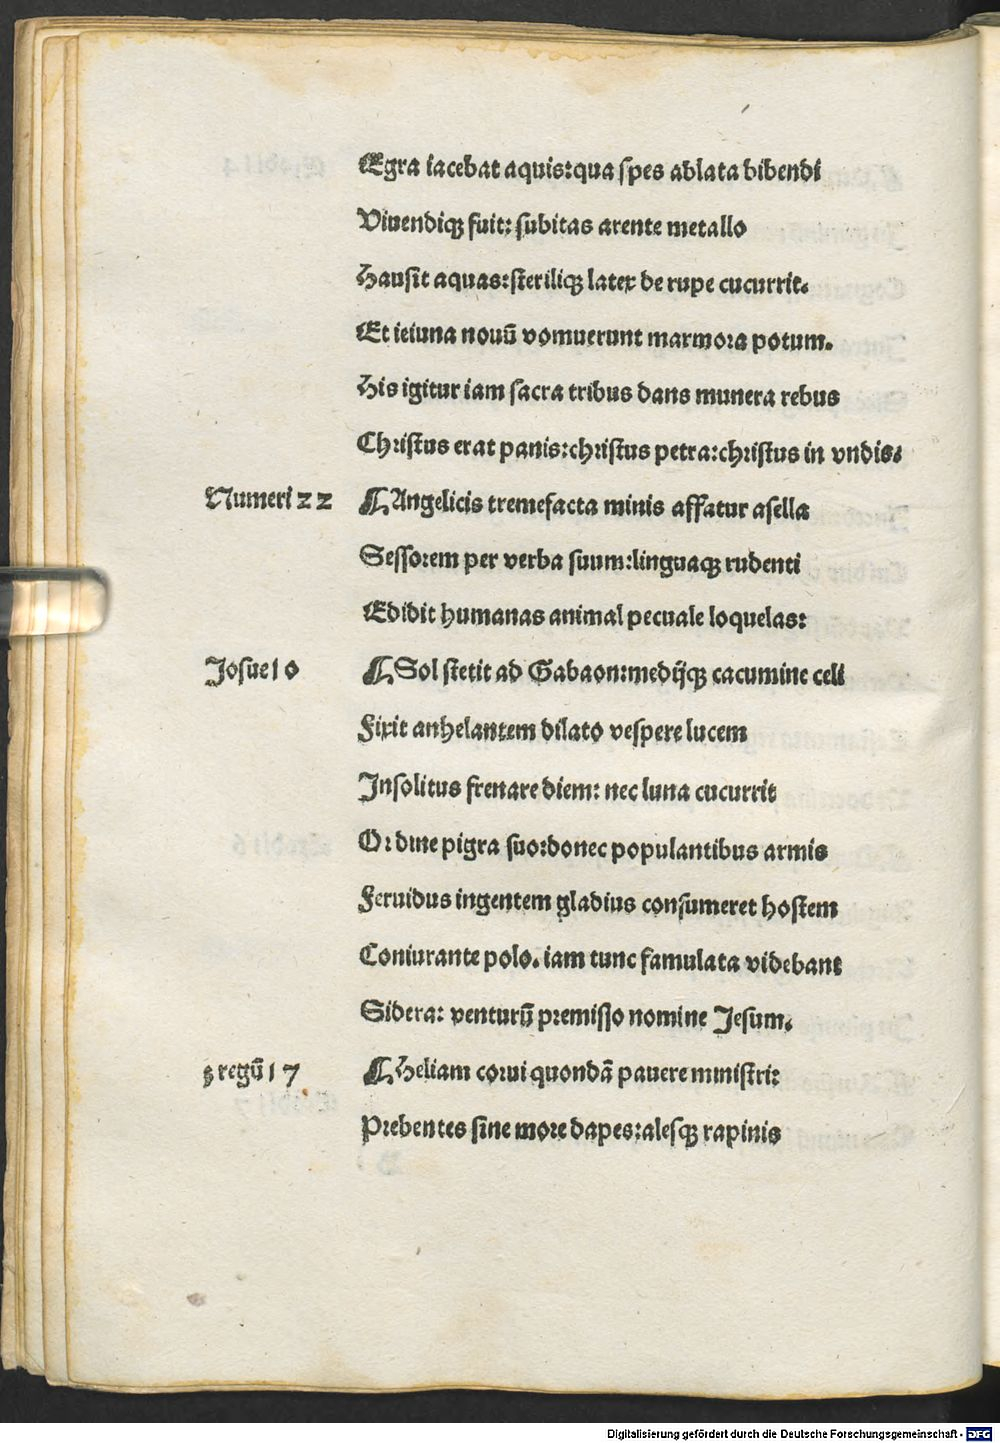 Ægra iacebat aquis:qua spes ablata bibendi
Viuendiqꝫ fuit: subitas arente metallo
Hausit aquas:steriliqꝫ latex de rupe cucurrit.
Et ieiuna nouū vomuerunt marmora potum.
His igitur iam sacra tribus dans munera rebus
Christus erat panis:christus petra:christus in vndis.
Numeri 22 ¶Angelicis tremefacta minis affatur asella
Sessorem per verba suum:linguaqꝫ rudenti
Edidit humanas animal pecuale loquelas:
Josue10 ¶Sol stetit ad Gabaon:medijqꝫ cacumine celi
Fixit anhelantem dilato vespere lucem
Insolitus frenare diem: nec luna cucurrit
Ordine pigra suo:donec populantibus armis
Feruidus ingentem gladius consumeret hostem
Coniurante polo. iam tunc famulata videbant
Sidera: venturū premisso nomine Jesum.
3 regū 17 ¶Heliam corui quondā pauere ministri:
Prebentes sine more dapes:alesqꝫ rapinis
Digitalisierung gefördert durch die Deutsche Forschungsgemeinschaft - DFG